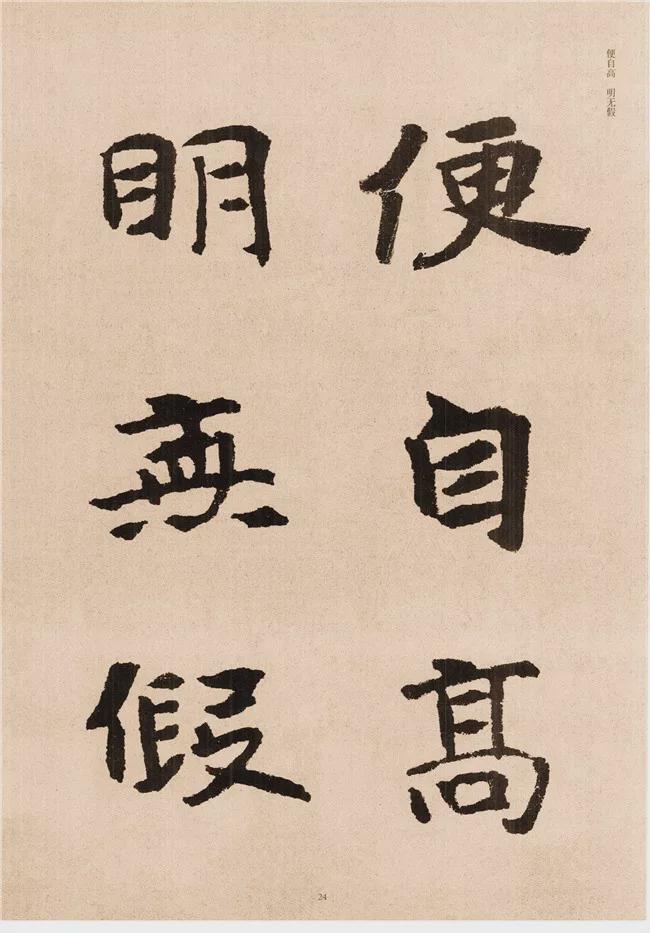 便自高 明无假
便自高
明無假
24